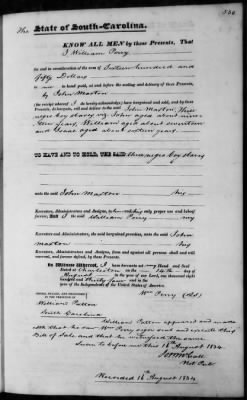 The State of South-Carolina.
KNOW ALL MEN by these Presents, That
I William Perry
for and in consideration of the sum of Sixteen hundred and
Fifty Dollars
to me in hand paid, at and before the sealing and delivery of these Presents,
by John Maxton
(the receipt whereof I do hereby acknowledge) have bargained and sold, and by these
Presents, do bargain, sell and deliver to the said John Maxton Three
negro boy slaves, viz, John aged about nine
teen years, William aged about seventeen
and Isaac aged about sixteen years
TO HAVE AND TO HOLD, THE SAID three negro boy slaves
unto the said John Maxton his
Executors, Administrators and Assigns, to his and their only proper use and behoof
forever. And I the said William Perry my
Executors, Administrators, the said bargained premises, unto the said John
Maxton his
Executors, Administrators and Assigns, from and against all persons shall and will
warrant, and forever defend, by these Presents.
In Witness Whereof, I have hereunto set my Hand and Seal
Dated at Charleston on the 14th day of
August in the year of our Lord, one thousand eight
hundred and thirty four and in the
year of the Independence of the United States of America.
SIGNED, SEALED, AND DELIVERED
IN THE PRESENCE OF
Wm Perry (LS)
William Patton
South Carolina
William Patton appeared and made
oath that he saw Wm Perry sign seal and execute this
Bill of Sale and that he witnessed the same
Sworn to before me this 16th August 1834
Not. Pub.
Recorded 16th August 1834